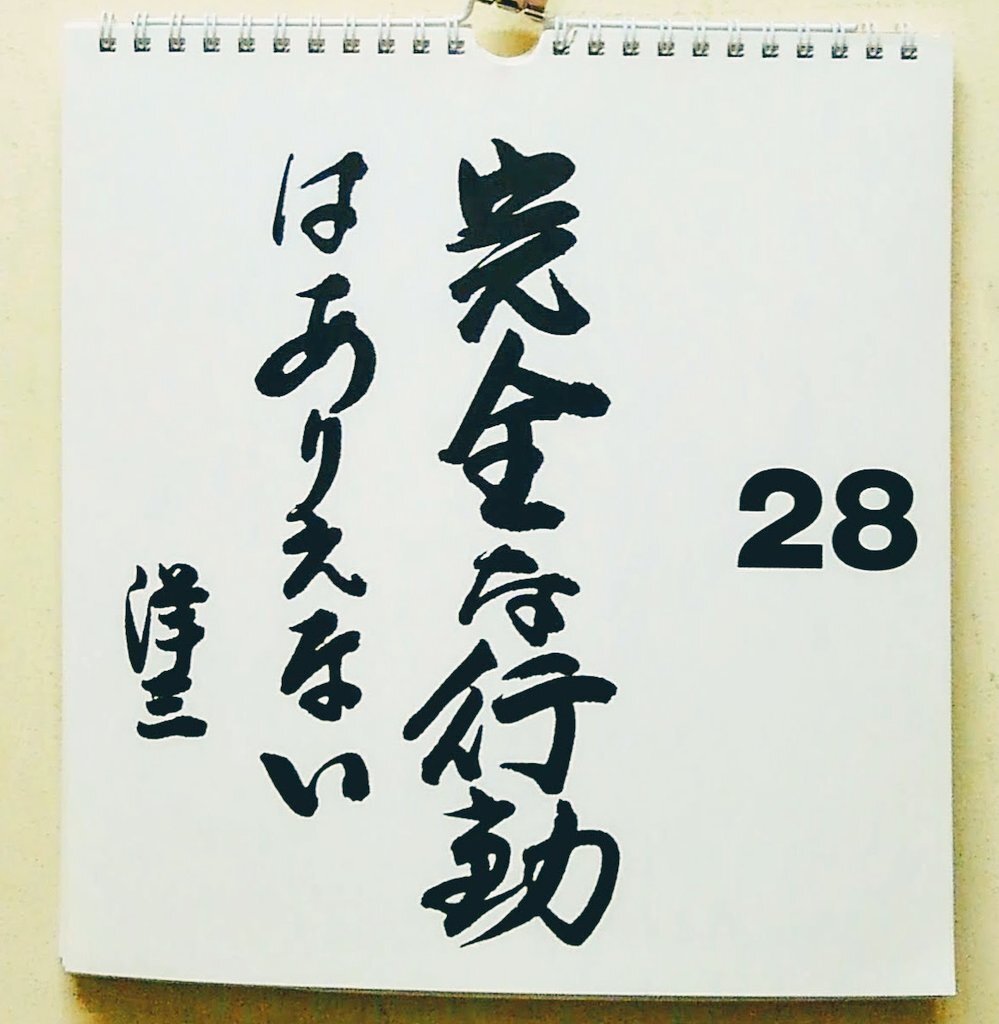 28
完全な行動
はありえない
洋三